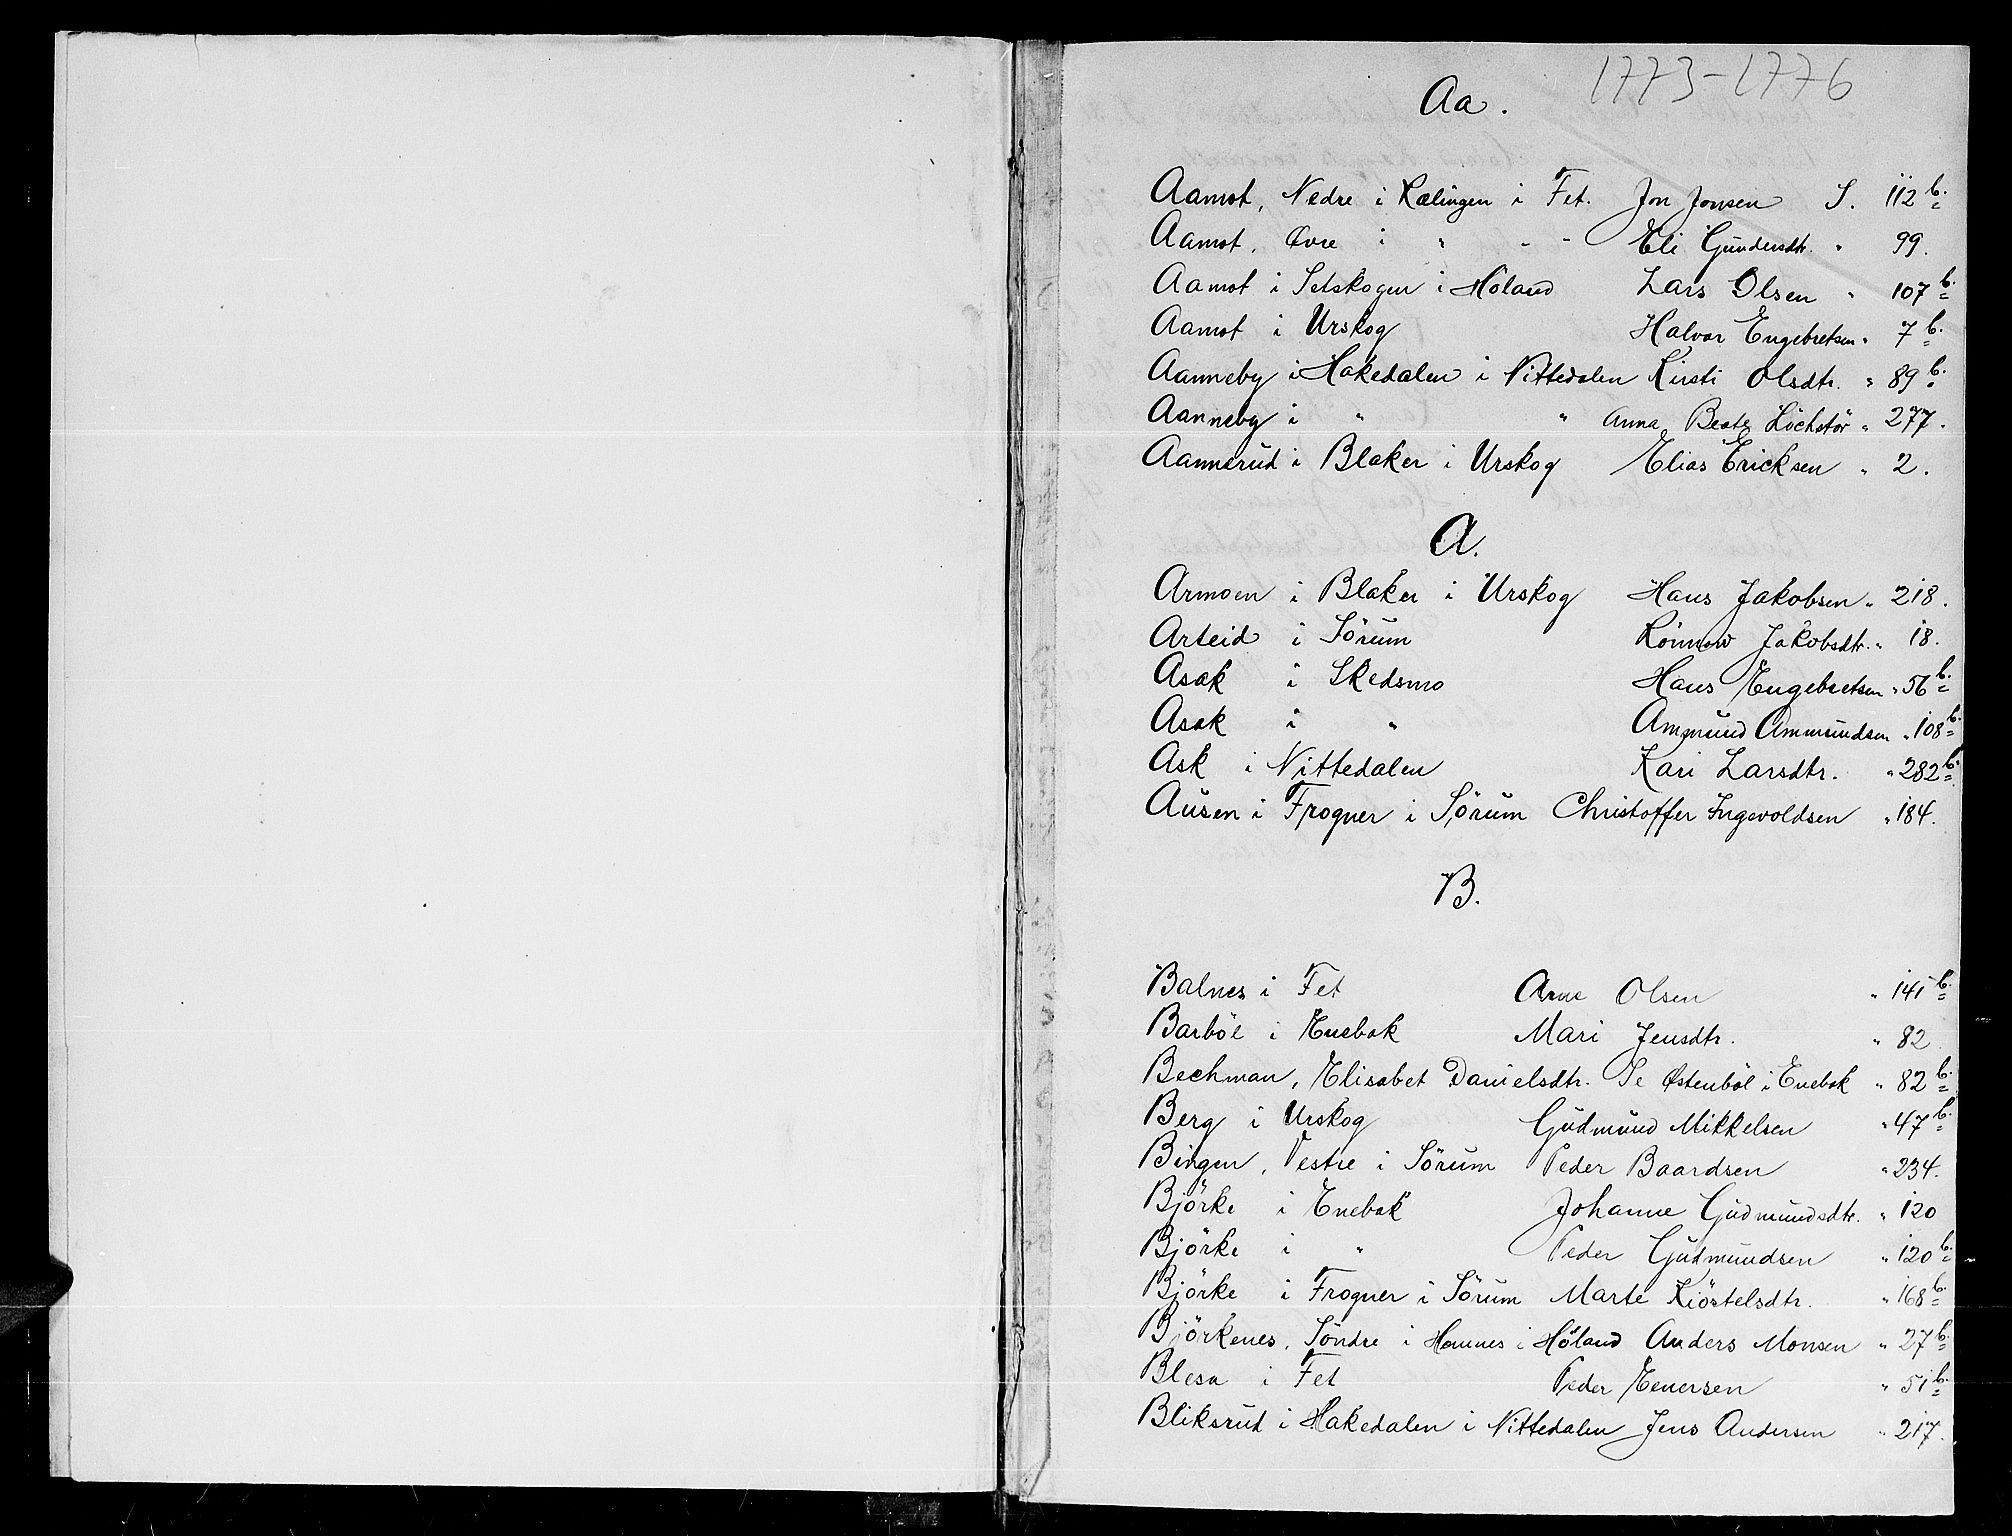 1773-1776
Aa.
Aamot, Nedre i Rælingen i Fet. Jon Jonsen S. 112 b.
Aamot, Øvre i " - - Eli Gundersdtr. " 99.
Aamot i Setskogen i Höland Lars Olsen " 107 b.
Aamot i Urskog Halvor Engebretsen " 7 b.
Aanneby i Hakedalen i Nittedalen Kirsti Olsdtr. " 89 b.
Aanneby i " " Anna Beate Höchstör " 277.
Aannerud i Blaker i Urskog Elias Ericksen " 2.
A.
Armoen i Blaker i Urskog Hans Jakobsen " 218.
Arteid i Sörum Rönnow Jakobsdtr. " 18.
Asak i Skedsmo Hans Engebretsen " 56 b.
Asak i " Ammund Ammundsen " 108 b.
Ask i Nittedalen Kari Larsdtr. " 282 b.
Ausen i Frogner i Sörum Christoffer Ingevoldsen " 184.
B.
Balnes i Fet Arne Olsen " 141 b.
Barböl i Enebak Mari Jensdtr. " 82
Bechman, Elisabet Danielsdtr. Se Østenböl i Enebak " 82 b.
Berg i Urskog Gudmund Mikkelsen " 47 b.
Bingen, Vestre i Sörum Peder Baardsen " 234.
Björke i Enebak Johanne Gudmundsdtr. " 120
Björke i " Peder Gudmundsen " 120 b.
Björke i Frogner i Sörum Marte Kiörtelsdtr. " 168 b.
Björkenes, Söndre i Hemnes i Höland Anders Monsen " 27 b.
Blesa i Fet Peder Evensen " 51 b.
Bliksrud i Hakedalen i Nittedalen Jens Andersen " 217.